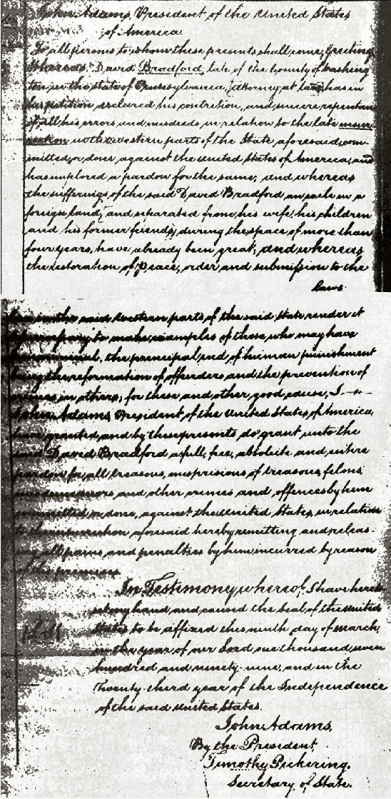 John Adams, President of the United States
of America.
To all persons to whom these presents shall come, Greeting
Whereas, David Bradford, late of the County of Washing
ton in the State of Pennsylvania, attorney at law has in
his petition declared his contrition, and sincere repentance
of all his errors and misdeeds in relation to the late insur
rection in the western parts of the State aforesaid com
mitted, or done, against the United States of America, and
has implored a pardon for the same, and whereas
the sufferings of the said David Bradford, an exile in a
foreign land, and separated from his wife, his children
and his former friends, during the space of more than
four years, have already been great; and whereas
the restoration, of peace, order, and submission to the
laws
in the said western parts of the said State render it
to make examples of those who may have
criminal, the principal end of human punishment
being the reformation of offenders and the prevention of
crimes in others; for these and other good cause, I
John Adams, President of the United States of America,
have granted, and by these presents do grant, unto the
said David Bradford a full, free, absolute and entire
pardon for all treasons, misprisions of treasons, felonies
misdemeanors and other crimes and offences by him
committed or done, against the United States, in relation
to the insurrection aforesaid hereby remitting and releas
ing all pains, and penalties by him incurred by reason
of the premises
In Testimony whereof, I have here
set my hand, and caused the seal of the United
States to be affixed the ninth day of March,
in the year of our Lord one thousand, seven
hundred and ninety-nine, and in the
twenty third year of the Independence
of the said United States.
John Adams.
By the President
Timothy Pickering.
Secretary of State.